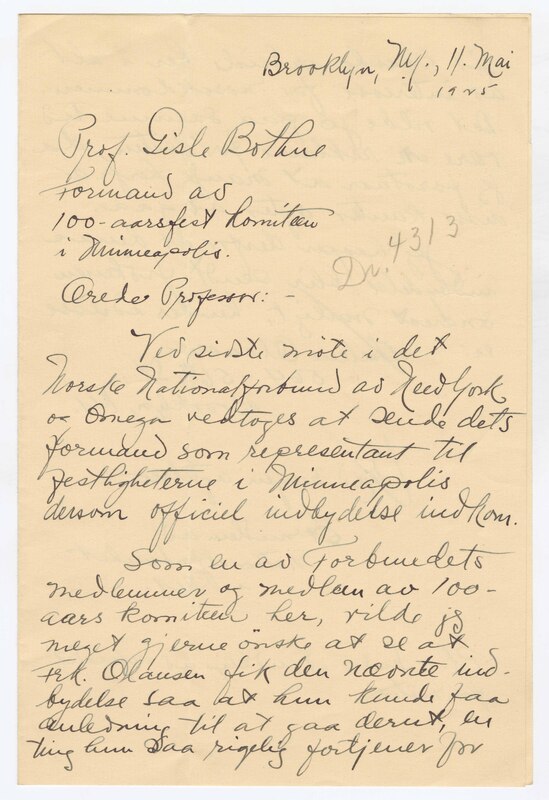 Brooklyn, N.Y., 11. Mai
1925
Prof. Gisle Bothne
Formand av
100-aarsfest komiteen
i Minneapolis.
Ærede Professor: -
Ved sidste möte i det
Norske Nationalforbund av New York
og Omegn vedtoges at sende dets
formand som representant til
festligheterne i Minneapolis
dersom officiel indbydelse indkom.
Som en av Forbundets
medlemmer og medlem av 100-
aars komiteen her, vilde jeg
meget gjerne önske at se at
Frk. Olausen fik den nævnte ind-
bydelse saa at hun kunde faa
anledning til at gaa derut, en
ting hun saa rigelig fortjener for
Dr. 4313